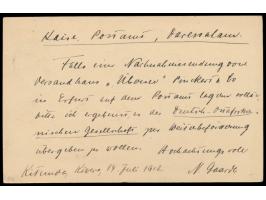 Kaiserl. Postamt, Daressalam.
Falls eine Nachnahmesendung vom
Versandhaus "Übersee" & Co
in Erfurt auf dem Postamt lagern sollte
bitte ich ergebenst es der Deutsch-Ostafrika-
nischen Gesellschaft zur Weiterbeförderung
übergeben zu wollen. Hochachtungsvoll
Kitunda, 14 Juli 1912. N Gaarde